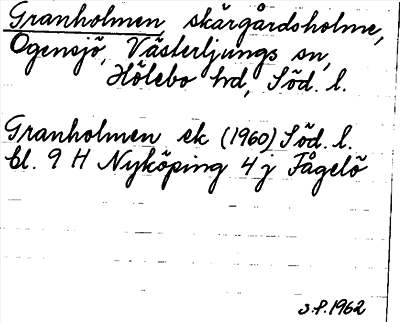 Granholmen, skärgårdsholme,
Ogensjö, Västerljungs sn,
Hölebo hd, Söd. l.
Granholmen ek (1960) Söd. l.
bl. 9 H Nyköping 4 j Fågelö
S.P. 1962